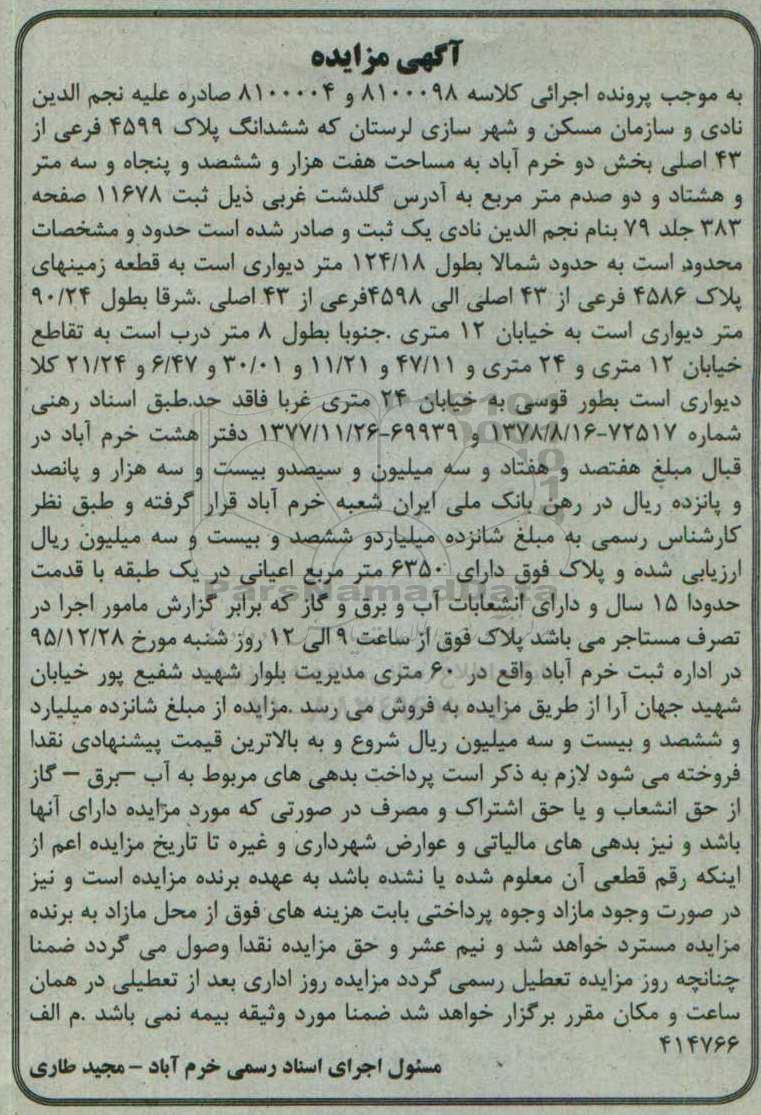 آگهی مزایده
به موجب پرونده اجرائی کلاسه ۸۱۰۰۰۹۸ و ۸۱۰۰۰۰۴ صادره علیه نجم الدین
نادی و سازمان مسکن و شهر سازی لرستان که ششدانگ پلاک ۴۵۹۹ فرعی از
۴۳ اصلی بخش دو خرم آباد به مساحت هفت هزار و ششصد و پنجاه و سه متر
و هشتاد و دو صدم متر مربع به آدرس گلدشت غربی ذیل ثبت ۱۱۶۷۸ صفحه
۳۸۳ جلد ۷۹ بنام نجم الدین نادی یک ثبت و صادر شده است حدود و مشخصات
محدود است به حدود شمالا بطول ۱۲۴/۱۸ متر دیواری است به قطعه زمینهای
پلاک ۴۵۸۶ فرعی از ۴۳ اصلی الی ۴۵۹۸فرعی از ۴۳ اصلی .شرقا بطول ۹۰/۲۴
متر دیواری است به خیابان ۱۲ متری .جنوبا بطول ۸ متر درب است به تقاطع
خیابان ۱۲ متری و ۲۴ متری و ۴۷/۱۱ و ۱۱/۲۱ و ۳۰/۰۱ و ۶/۴۷ و ۲۱/۲۴ کلا
دیواری است بطور قوسی به خیابان ۲۴ متری غربا فاقد حد.طبق اسناد رهنی
شماره ۷۲۵۱۷-۱۳۷۸/۸/۱۶ و ۶۹۹۳۹-۱۳۷۷/۱۱/۲۶ دفتر هشت خرم آباد در
قبال مبلغ هفتصد و هفتاد و سه میلیون و سیصدو بیست و سه هزار و پانصد
و پانزده ریال در رهن بانک ملی ایران شعبه خرم آباد قرار گرفته و طبق نظر
کارشناس رسمی به مبلغ شانزده میلیاردو ششصد و بیست و سه میلیون ریال
ارزیابی شده و پلاک فوق دارای ۶۳۵۰ متر مربع اعیانی در یک طبقه با قدمت
حدودا ۱۵ سال و دارای انشعابات آب و برق و گاز که برابر گزارش مامور اجرا در
تصرف مستاجر می باشد پلاک فوق از ساعت ۹ الی ۱۲ روز شنبه مورخ ۹۵/۱۲/۲۸
در اداره ثبت خرم آباد واقع در ۶۰ متری مدیریت بلوار شهید شفیع پور خیابان
شهید جهان آرا از طریق مزایده به فروش می رسد .مزایده از مبلغ شانزده میلیارد
و ششصد و بیست و سه میلیون ریال شروع و به بالاترین قیمت پیشنهادی نقدا
فروخته می شود لازم به ذکر است پرداخت بدهی های مربوط به آب –برق – گاز
از حق انشعاب و یا حق اشتراک و مصرف در صورتی که مورد مزایده دارای آنها
باشد و نیز بدهی های مالیاتی و عوارض شهرداری و غیره تا تاریخ مزایده اعم از
اینکه رقم قطعی آن معلوم شده یا نشده باشد به عهده برنده مزایده است و نیز
در صورت وجود مازاد وجوه پرداختی بابت هزینه های فوق از محل مازاد به برنده
مزایده مسترد خواهد شد و نیم عشر و حق مزایده نقدا وصول می گردد ضمنا
چنانچه روز مزایده تعطیل رسمی گردد مزایده روز اداری بعد از تعطیلی در همان
ساعت و مکان مقرر برگزار خواهد شد ضمنا مورد وثیقه بیمه نمی باشد .م الف
۴۱۴۷۶۶
مسئول اجرای اسناد رسمی خرم آباد – مجید طاری
ParsNamadData